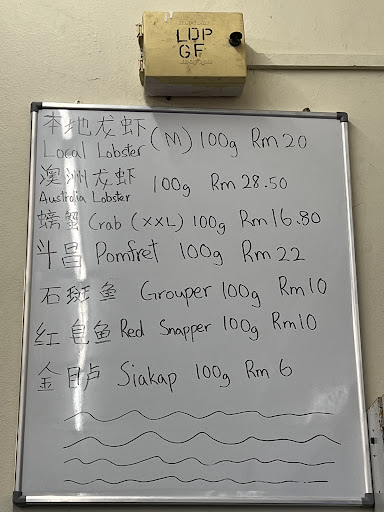 LDP
GF
本地龙虾 (M) 100g Rm 20
Local Lobster
澳洲龙虾 100g Rm 28.50
Australia Lobster
螃蟹 Crab (XXL) 100g Rm 16.80
斗昌 Pomfret 100g Rm 22
石斑鱼 Grouper 100g Rm 10
红皂鱼 Red Snapper 100g Rm 10
金目卢 Siakap 100g Rm 6